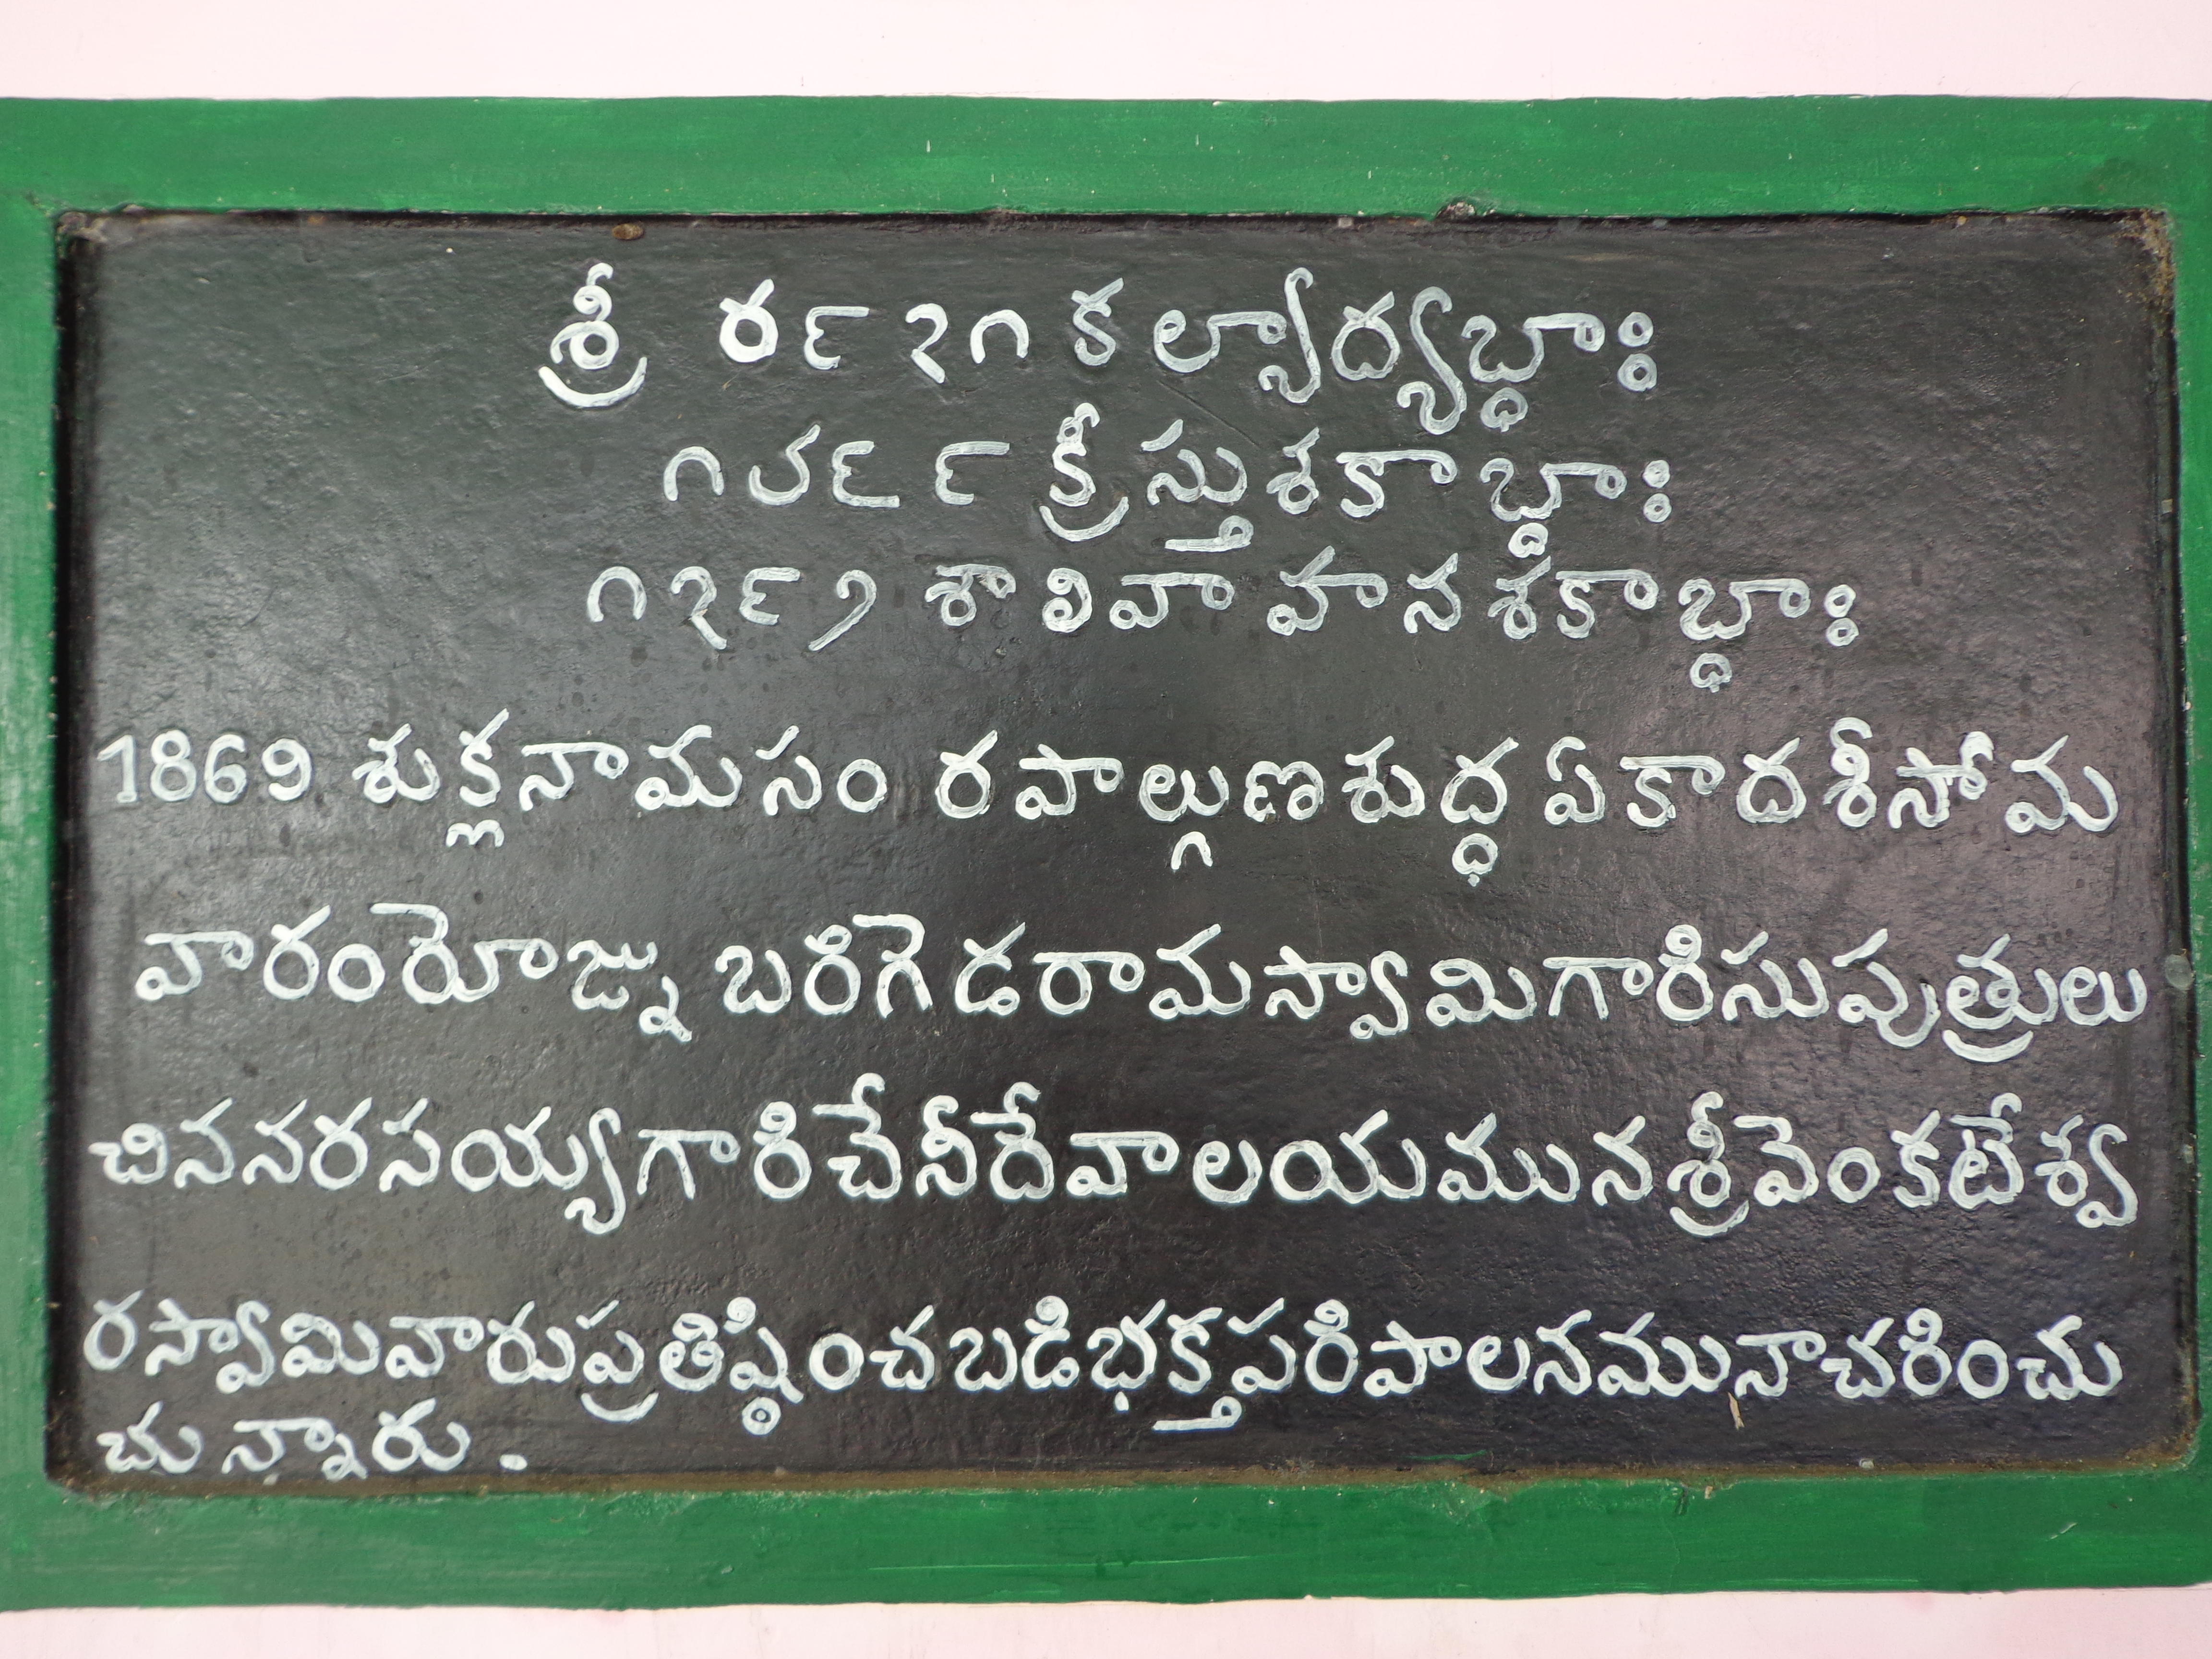 శ్రీ ౪౯౨౧ కల్పాద్యబ్ధాః
౧౮౬౯ క్రీస్తుశకాబ్దాః
౧౩౬౨ శాలివాహనశకాబ్ధాః
1869 శుక్లనామసం రపాల్గుణశుద్ధ ఏకాదశీసోమ
వారంరోజ్ను బరిగెడరామస్వామిగారిసుపుత్రులు
చిననరసయ్యగారిచేనీదేవాలయమునశ్రీవెంకటేశ్వ
రస్వామివారుప్రతిష్ఠించబడిభక్తపరిపాలనమునాచరించు
చున్నారు.